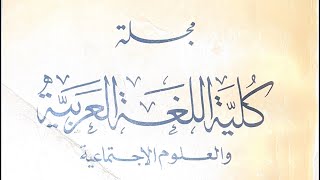 مجلة
كُلِيَّة اللغَة العَرَبيَّة
والعلوم الاجتماعية